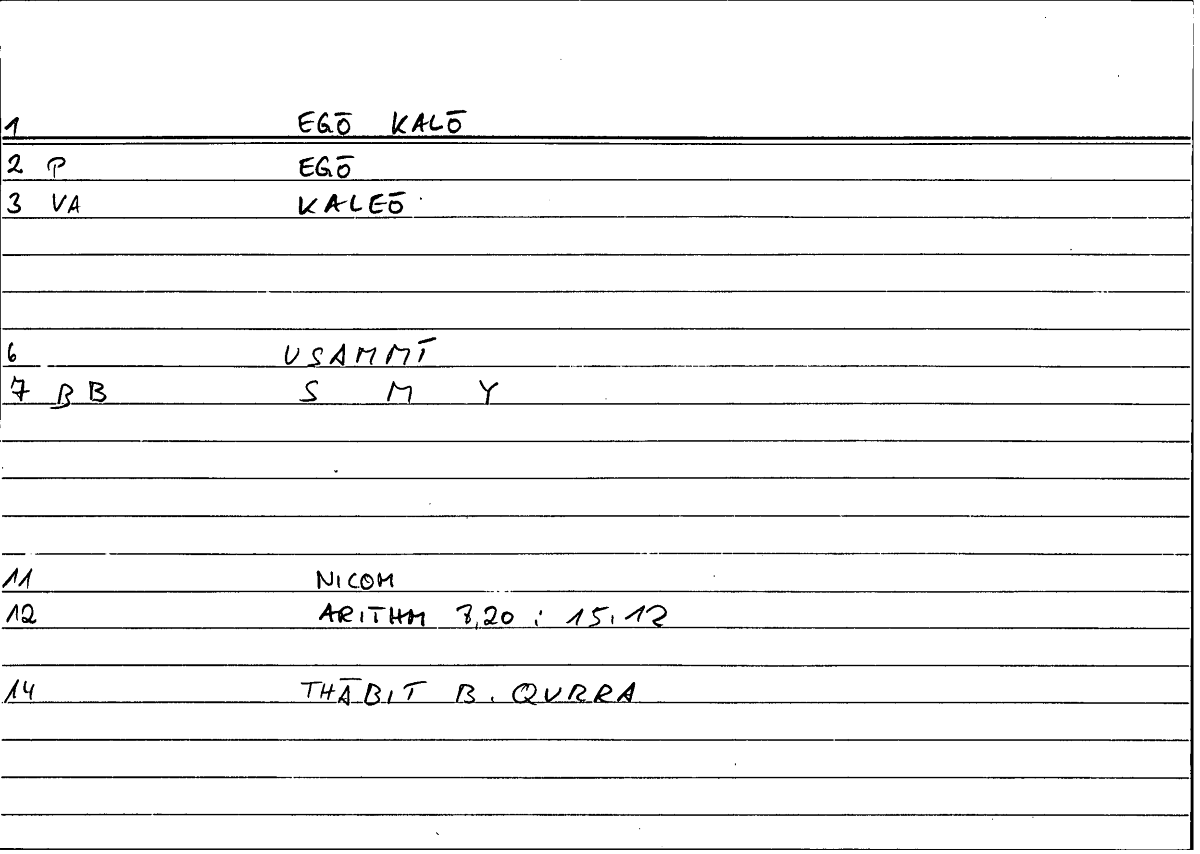 1 EGŌ KALŌ
2 P EGŌ
3 VA KALEŌ
6 USAMMĪ
7 BB S M Y
11 NICOM
12 ARITHM 8,20 : 15,12
14 THĀBIT B. QURRA